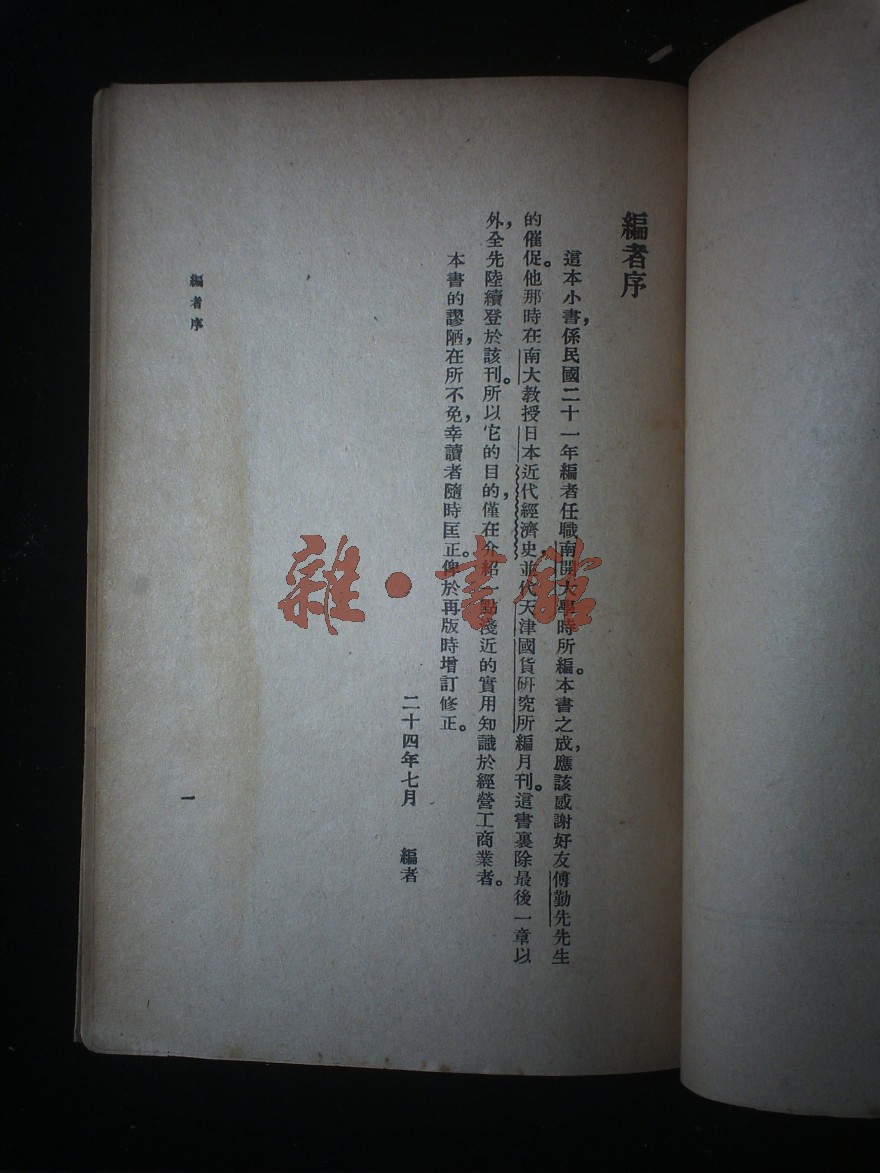 編者序
這本小書，係民國二十一年編者任職南開大學時所編。本書之成，應該感謝好友傅勤先先生
的催促。他那時在南大教授日本近代經濟史，並代天津國貨研究所編月刊。這書裏除最後一章以
外，全先陸續登於該刊。所以它的目的，僅在介紹一點淺近的實用知識於經營工商業者。
本書的謬陋，在所不免，幸讀者隨時匡正。俾於再版時增訂修正。
二十四年七月　編者
編者序
一
雜·書館